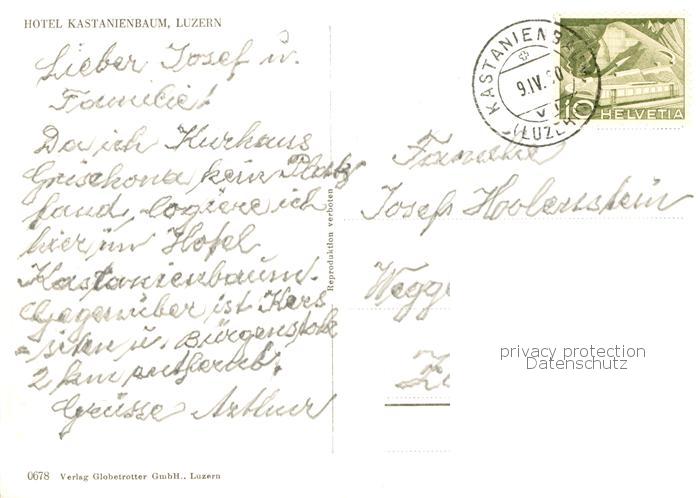 HOTEL KASTANIENBAUM, LUZERN
Lieber Josef u.
Familie!
Da ich Kurhaus
Grischona kein Platz
fand, logiere ich
hier im Hotel
Kastanienbaum.
Gegenüber ist Kers
-siten u. Bürgenstok
2 km entfernt.
Grüsse Arthur
0678 Verlag Globetrotter GmbH., Luzern
Reproduktion verboten
KASTANIENBAUM
9.IV.60
(LUZERN)
10 HELVETIA
Familie
Josef
Wegg
privacy protection
Datenschutz